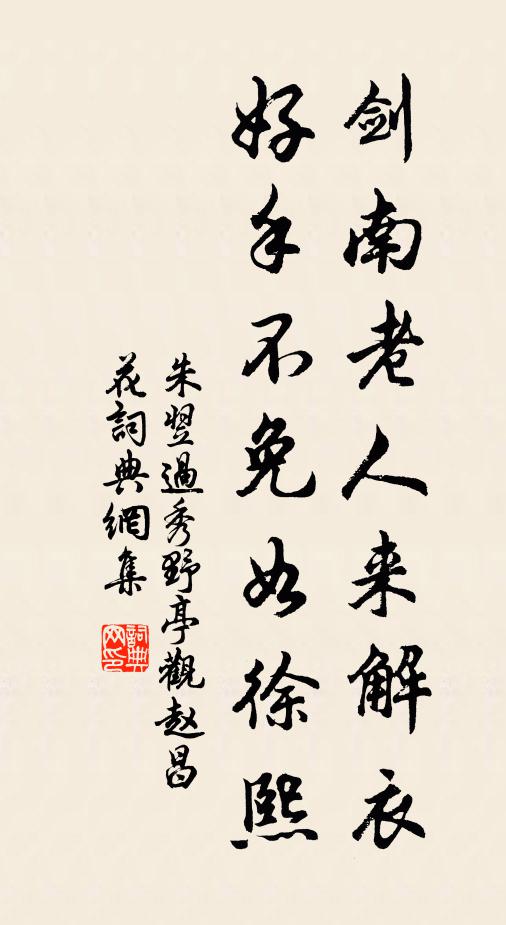 剑南老人来解衣
好手不免如徐熙
朱翌過秀野亭觀赵昌
花詞典網集
詞典
网印